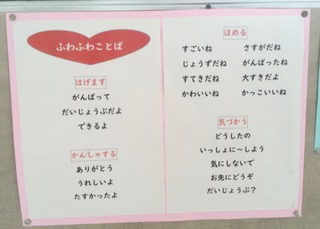 ふわふわことば
はげます
がんばって
だいじょうぶだよ
できるよ
かんしゃする
ありがとう
うれしいよ
たすかったよ
ほめる
すごいね　さすがだね
じょうずだね　がんばったね
すてきだね　大すきだよ
かわいいね　かっこいいね
気づかう
どうしたの
いっしょに～しよう
気にしないで
お先にどうぞ
だいじょうぶ？